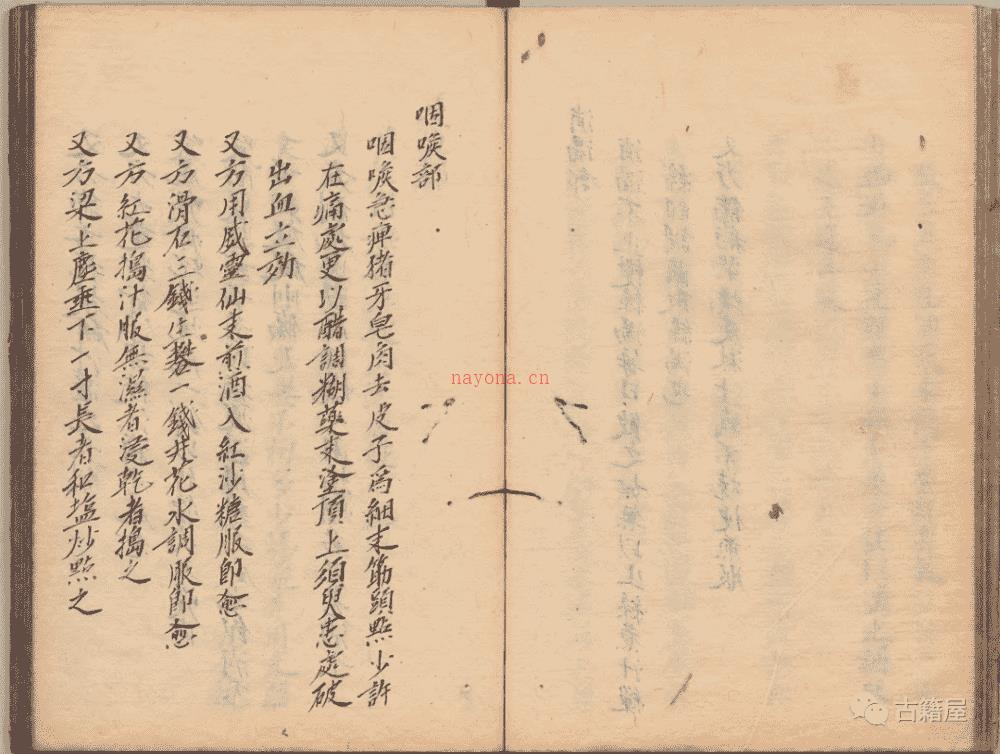 咽喉部
咽喉急痺猪牙皂肉去皮子為細末筯頭點少許
在痛處更以醋調糊藥末塗頂上須臾恙處破
出血立効
又方用威靈仙末煎酒入紅沙糖服即愈
又方滑石三錢生礬一錢井花水調服即愈
又方紅花搗汁服無濕者浸乾者搗之
又方梁上塵垂下一寸長者和塩炒點之
nayona.cn
古籍屋